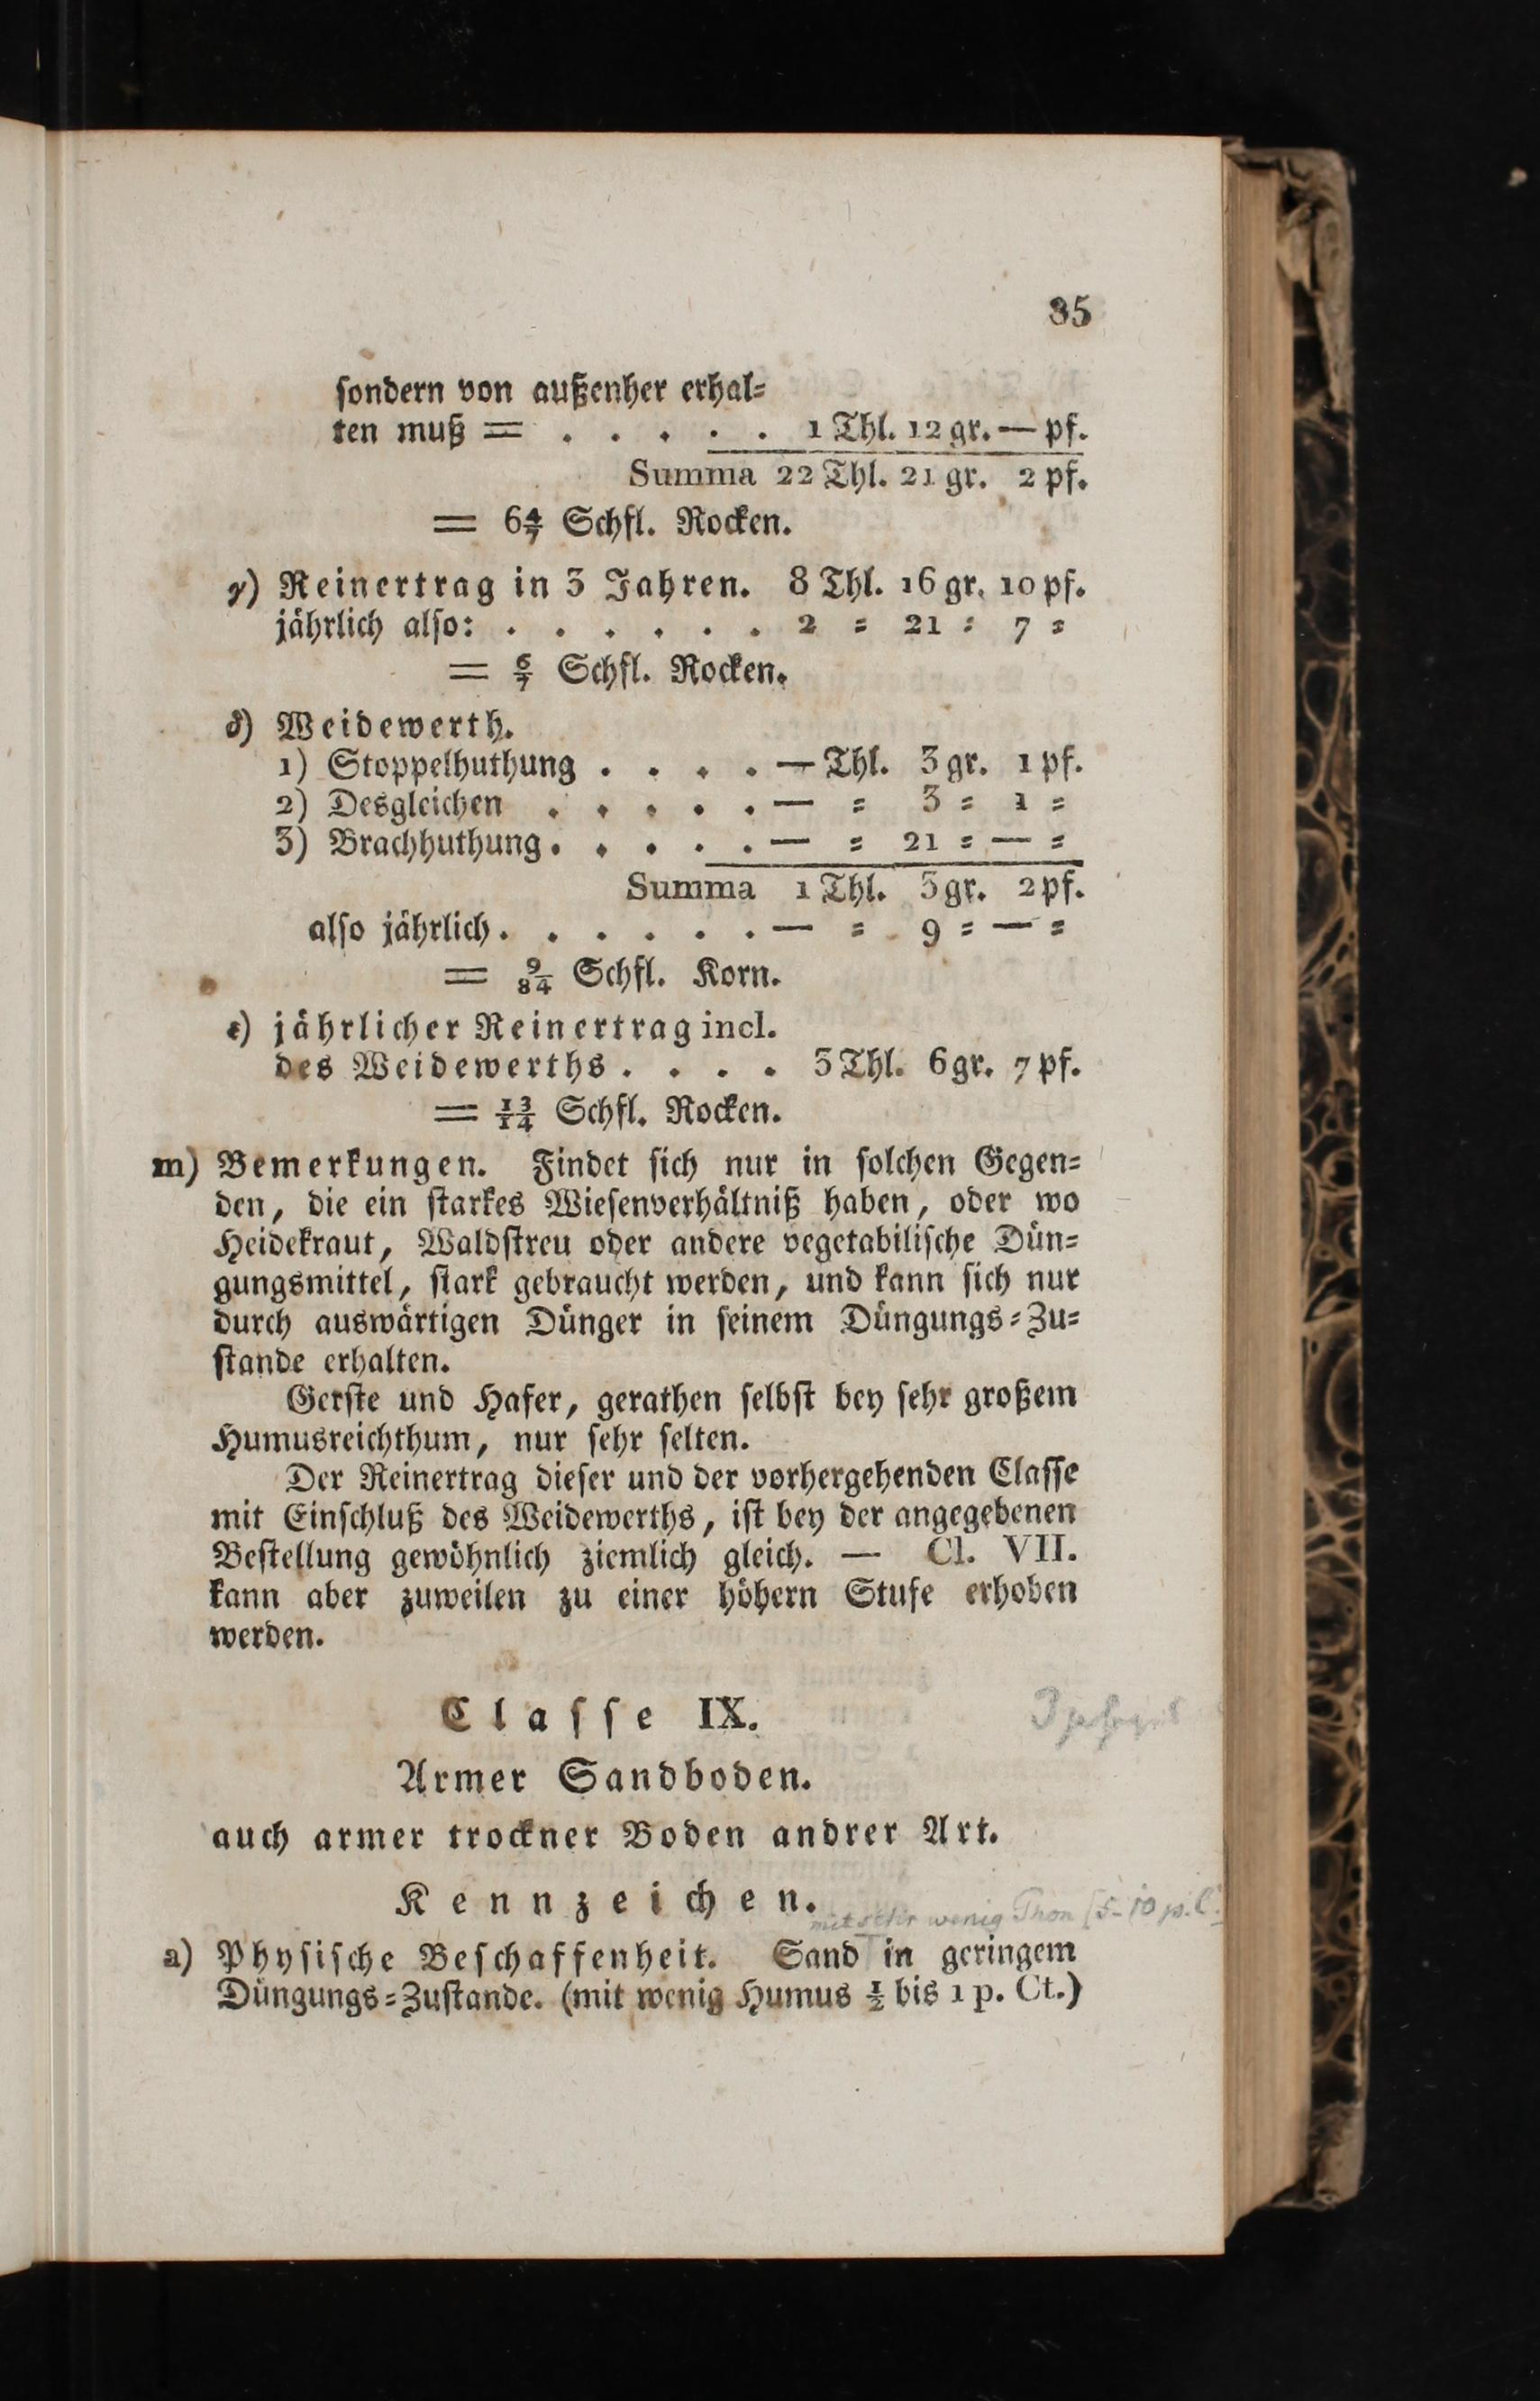 35
sondern von außenher erhal=
ten muß = . . . . . 1 Thl. 12 gr. — pf.
Summa 22 Thl. 21 gr. 2 pf.
= 6 4/7 Schfl. Rocken.
γ) Reinertrag in 3 Jahren. 8 Thl. 16 gr. 10 pf.
jährlich also: . . . . . . 2 = 21 = 7 =
= 6/7 Schfl. Rocken.
δ) Weidewerth.
1) Stoppelhuthung . . . . — Thl. 3 gr. 1 pf.
2) Desgleichen . . . . . — = 3 = 1 =
3) Brachhuthung . . . . . — = 21 = — =
Summa 1 Thl. 3 gr. 2 pf.
also jährlich . . . . . . — = 9 = — =
= 9/84 Schfl. Korn.
ε) jährlicher Reinertrag incl.
des Weidewerths . . . . 3 Thl. 6 gr. 7 pf.
= 13/14 Schfl. Rocken.
m) Bemerkungen. Findet sich nur in solchen Gegen=
den, die ein starkes Wiesenverhältniß haben, oder wo
Heidekraut, Waldstreu oder andere vegetabilische Dün=
gungsmittel, stark gebraucht werden, und kann sich nur
durch auswärtigen Dünger in seinem Düngungs=Zu=
stande erhalten.
Gerste und Hafer, gerathen selbst bey sehr großem
Humusreichthum, nur sehr selten.
Der Reinertrag dieser und der vorhergehenden Classe
mit Einschluß des Weidewerths, ist bey der angegebenen
Bestellung gewöhnlich ziemlich gleich. — Cl. VII.
kann aber zuweilen zu einer höhern Stufe erhoben
werden.
Classe IX.
Armer Sandboden.
auch armer trockner Boden andrer Art.
Kennzeichen.
mit sehr wenig Thon (5-10 p. C.
a) Physische Beschaffenheit. Sand in geringem
Düngungs=Zustande. (mit wenig Humus 1/2 bis 1 p. Ct.)